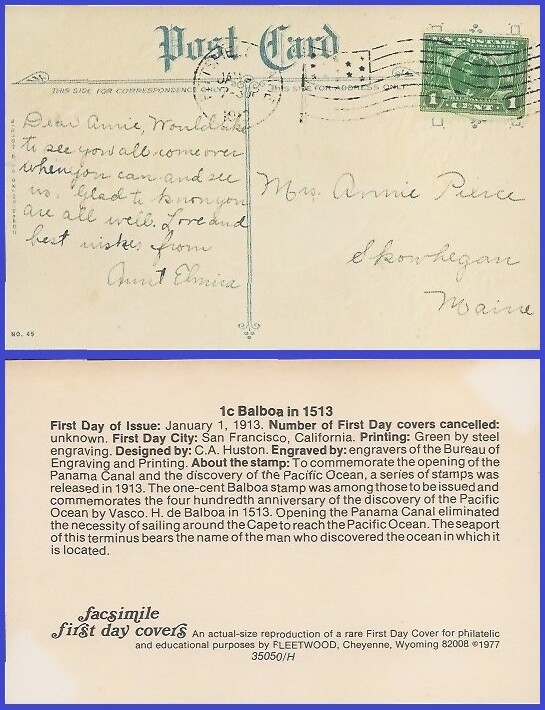 Post Card
THIS SIDE FOR CORRESPONDENCE ONLY THIS SIDE FOR ADDRESS ONLY
JAN
U.S. POSTAGE
1 CENT 1
Dear Annie, Would like
to see you all come over
when you can and see
us. Glad to know you
are all well. Love and
best wishes from
Aunt Elmira
Mrs. Annie Pierce
Skowhegan
Maine
NO. 45
1c Balboa in 1513
First Day of Issue: January 1, 1913. Number of First Day covers cancelled:
unknown. First Day City: San Francisco, California. Printing: Green by steel
engraving. Designed by: C.A. Huston. Engraved by: engravers of the Bureau of
Engraving and Printing. About the stamp: To commemorate the opening of the
Panama Canal and the discovery of the Pacific Ocean, a series of stamps was
released in 1913. The one-cent Balboa stamp was among those to be issued and
commemorates the four hundredth anniversary of the discovery of the Pacific
Ocean by Vasco. H. de Balboa in 1513. Opening the Panama Canal eliminated
the necessity of sailing around the Cape to reach the Pacific Ocean. The seaport
of this terminus bears the name of the man who discovered the ocean in which it
is located.
facsimile
first day covers An actual-size reproduction of a rare First Day Cover for philatelic
and educational purposes by FLEETWOOD, Cheyenne, Wyoming 82008 ©1977
35050/H